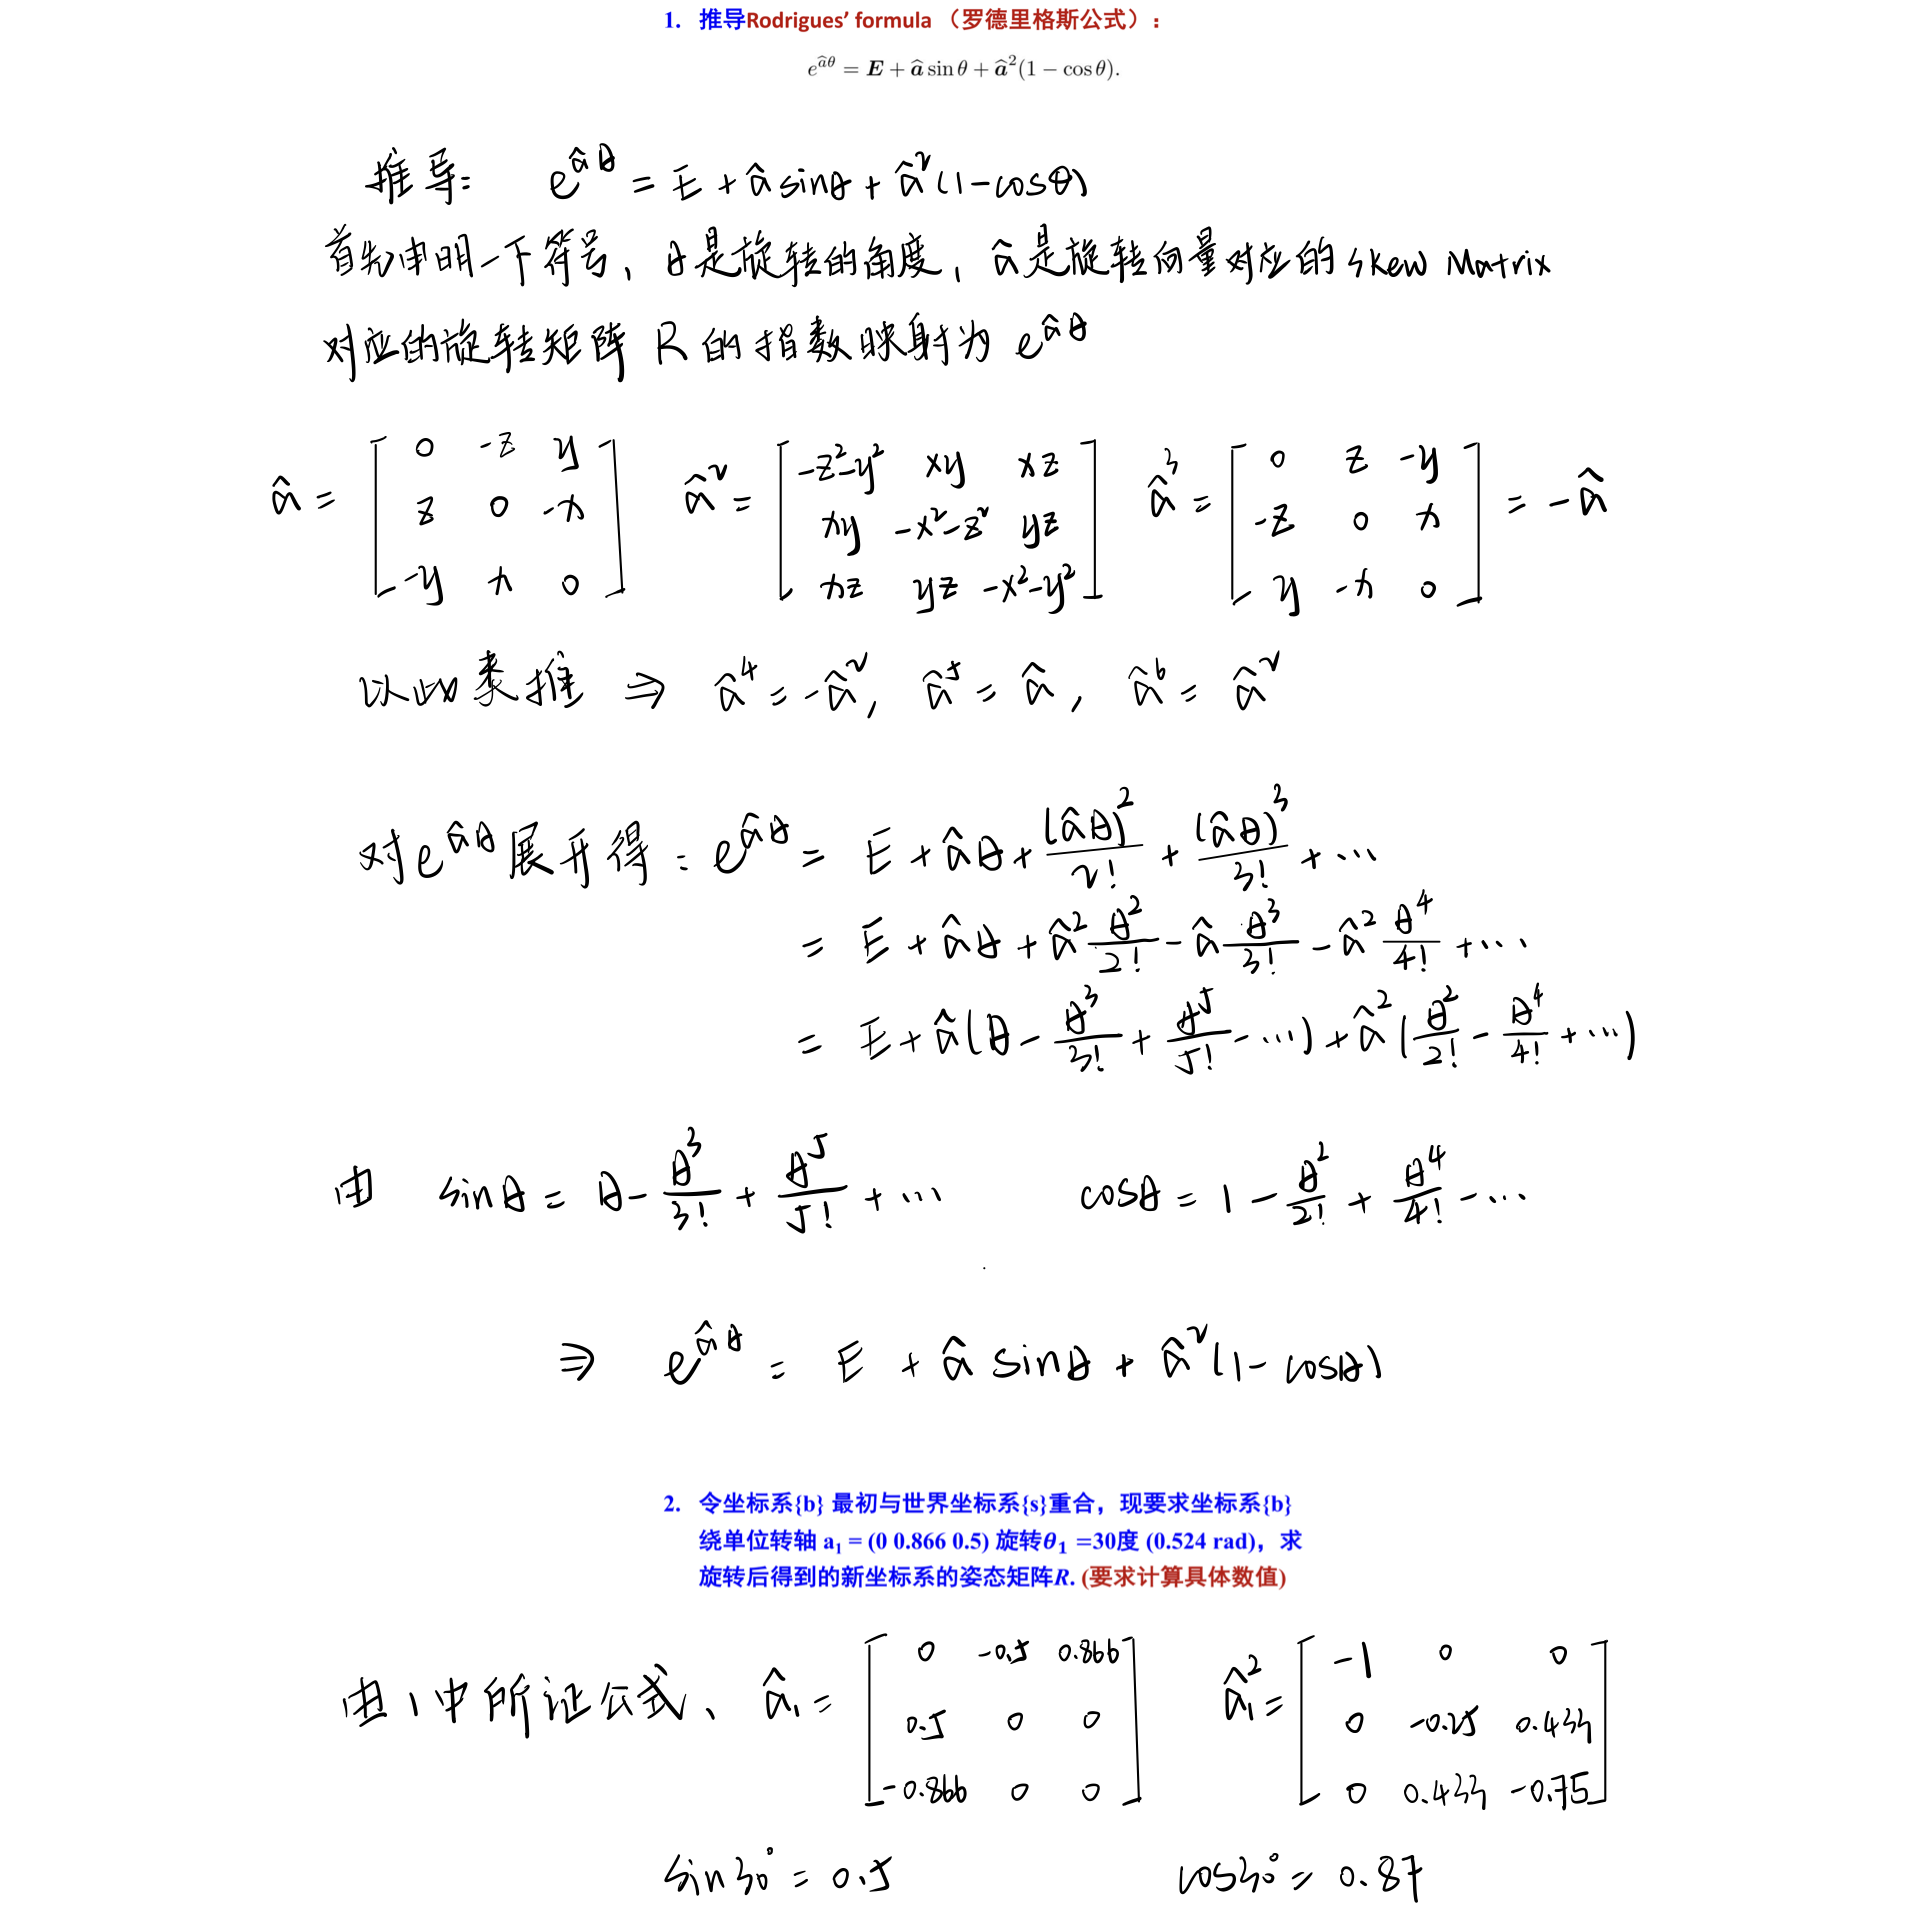 1. 推导Rodrigues’ formula （罗德里格斯公式）：
e^{âθ} = E + â sin θ + â²(1 − cos θ).
推导: e^{âθ} = E + â sinθ + â²(1-cosθ)
首先申明一下符号、θ是旋转的角度，â是旋转向量对应的 skew Matrix
对应的旋转矩阵 R 的指数映射为 e^{âθ}
â = [0 -z y; z 0 -x; -y x 0] â² = [-z²-y² xy xz; xy -x²-z² yz; xz yz -x²-y²] â³ = [0 z -y; -z 0 x; y -x 0] = -â
以此类推 ⇒ â⁴ = -â², â⁵ = â, â⁶ = â²
对 e^{âθ} 展开得: e^{âθ} = E + âθ + (âθ)²/2! + (âθ)³/3! + ⋯
= E + âθ + â² θ²/2! - â θ³/3! - â² θ⁴/4! + ⋯
= E + â(θ - θ³/3! + θ⁵/5! - ⋯) + â²(θ²/2! - θ⁴/4! + ⋯)
由 sinθ = θ - θ³/3! + θ⁵/5! + ⋯ cosθ = 1 - θ²/2! + θ⁴/4! - ⋯
⇒ e^{âθ} = E + â sinθ + â²(1-cosθ)
2. 令坐标系{b} 最初与世界坐标系{s}重合，现要求坐标系{b}
绕单位转轴 a₁ = (0 0.866 0.5) 旋转θ₁ =30度 (0.524 rad)，求
旋转后得到的新坐标系的姿态矩阵R. (要求计算具体数值)
由1中所证公式、â₁ = [0 -0.5 0.866; 0.5 0 0; -0.866 0 0] â₁² = [-1 0 0; 0 -0.25 0.433; 0 0.433 -0.75]
sin30° = 0.5 cos30° = 0.87